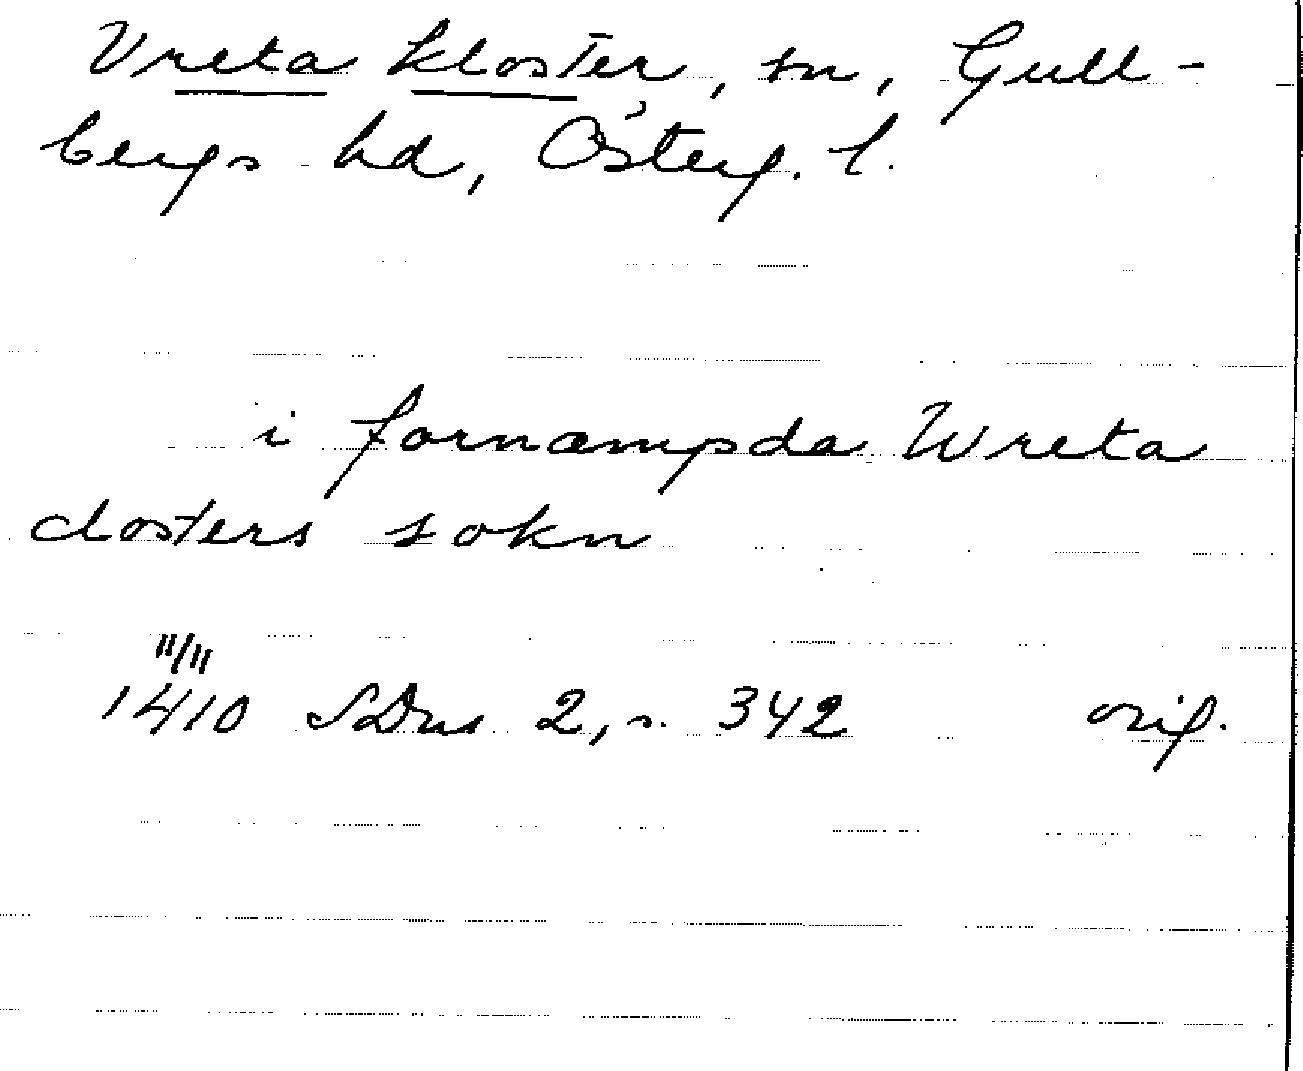 Vreta kloster, sn, Gull-
bergs hd, Österg. l.
i fornæmpda Wreta
closters sokn
11/11
1410 SDns 2, s. 342 orig.